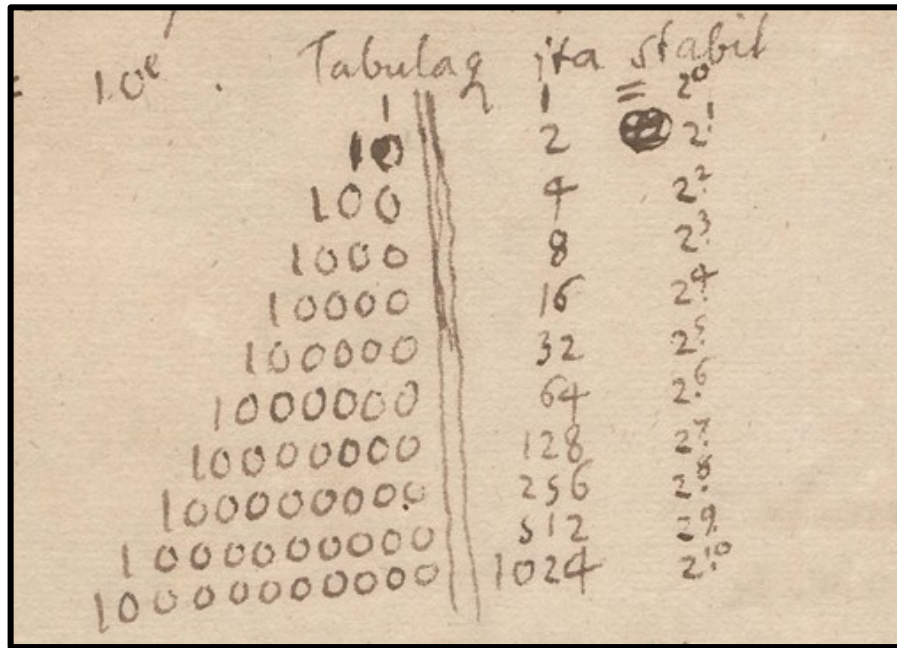 = 10ᵉ. Tabulaq jta stabit
1 1 = 2⁰
10 2 2.¹
100 4 2.²
1000 8 2.³
10000 16 2.⁴
100000 32 2.⁵
1000000 64 2.⁶
10000000 128 2.⁷
100000000 256 2.⁸
1000000000 512 2.⁹
10000000000 1024 2.¹⁰